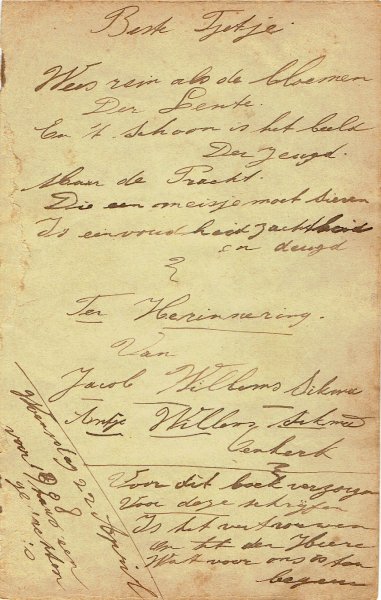 Beste Tjetje.
Wees rein als de bloemen
Der Lente.
En 't schoon is het beeld
Der Jeugd.
Maar de Pracht.
Die een meisje moet sieren
Is eenvoudheid zachtheid
en deugd
Ter Herinnering.
Van
Jacob Willems Sikma
Antje Willems Sikma
Oenkerk
Voor dit boek
Voor deze schrijfen
Is het vertrouwen
den Heere
Wat voor ons is
begeern
22 April
1888
voor een